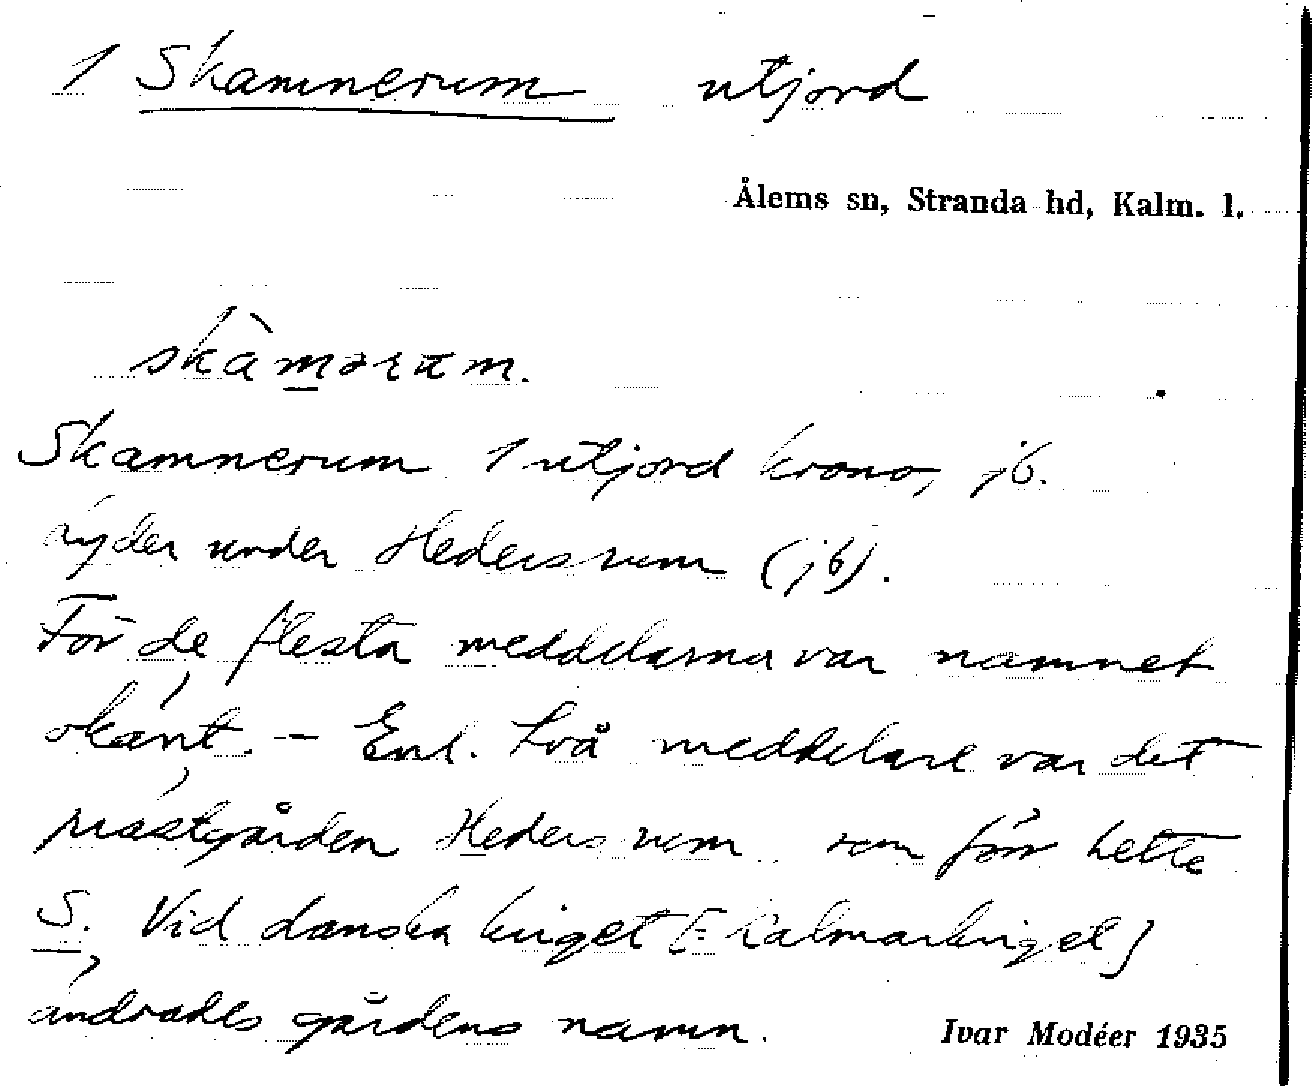 1 Skamnerum utjord
Ålems sn, Stranda hd, Kalm. l.
skàmərum.
Skamnerum 1 utjord krono, jb.
lyder under Hedersrum (jb).
För de flesta meddelarna var namnet
okänt. – Enl. två meddelare var det
prästgården Hedersrum som förr hette
S. Vid danska kriget [= Kalmarkriget]
ändrades gårdens namn.
Ivar Modéer 1935